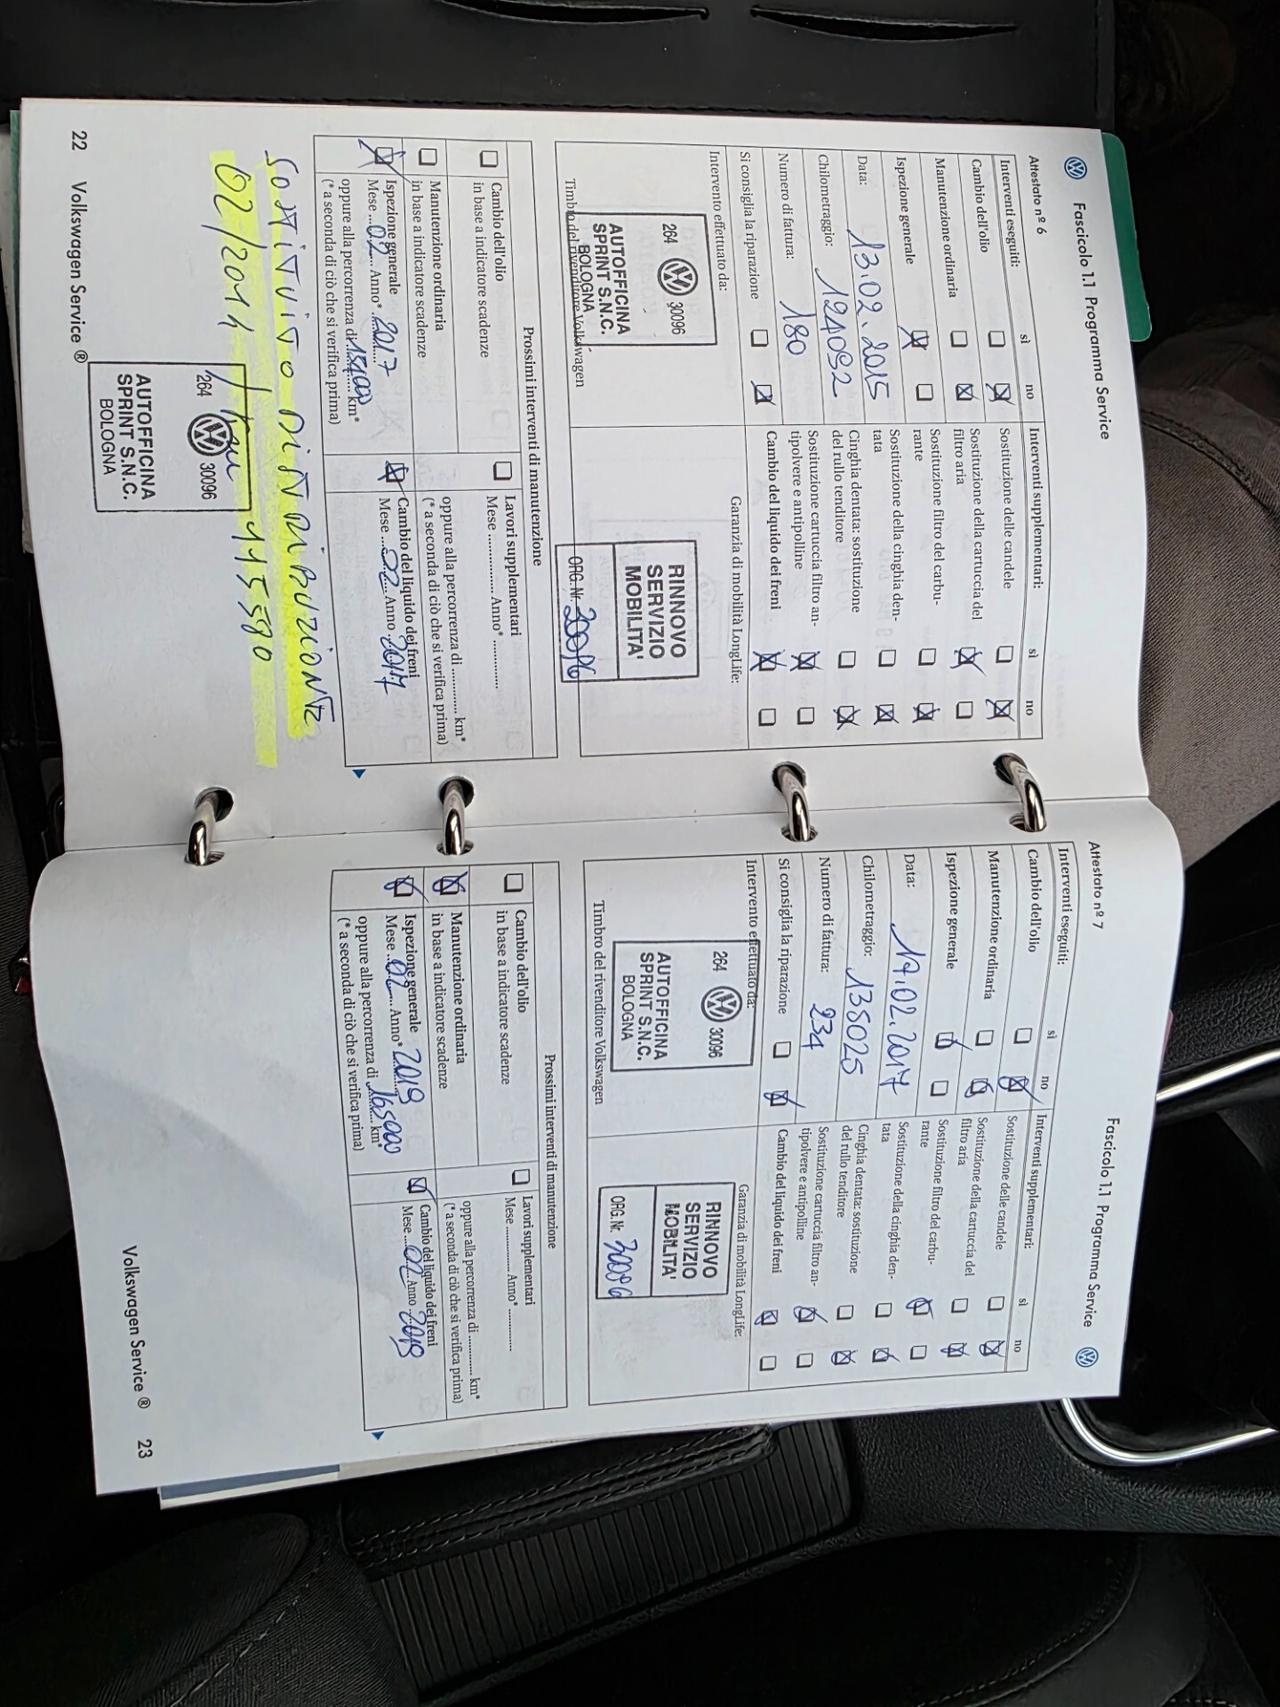 Fascicolo 1.1 Programma Service
Attestato nº 6
Interventi eseguiti:
sì
no
Cambio dell'olio
Manutenzione ordinaria
Ispezione generale
Data:
13.02.2015
Chilometraggio:
124092
Numero di fattura:
180
Si consiglia la riparazione
Intervento effettuato da:
264
30096
AUTOFFICINA
SPRINT S.N.C.
BOLOGNA
Timbro del rivenditore Volkswagen
Interventi supplementari:
sì
no
Sostituzione delle candele
Sostituzione della cartuccia del
filtro aria
Sostituzione filtro del carbu-
rante
Sostituzione della cinghia den-
tata
Cinghia dentata: sostituzione
del rullo tenditore
Sostituzione cartuccia filtro an-
tipolvere e antipolline
Cambio del liquido dei freni
Garanzia di mobilità LongLife:
RINNOVO
SERVIZIO
MOBILITA'
ORG. Nr. 30096
Prossimi interventi di manutenzione
Cambio dell'olio
in base a indicatore scadenze
Manutenzione ordinaria
in base a indicatore scadenze
Ispezione generale
Mese ...02... Anno* ...2017...
oppure alla percorrenza di 154000 km*
(* a seconda di ciò che si verifica prima)
Lavori supplementari
Mese ............... Anno* ............
oppure alla percorrenza di ............ km*
(* a seconda di ciò che si verifica prima)
Cambio del liquido dei freni
Mese ...02... Anno 2017
SOSTITUITO DISTRIBUZIONE
02/2014
115580
264
30096
AUTOFFICINA
SPRINT S.N.C.
BOLOGNA
22 Volkswagen Service ®
Fascicolo 1.1 Programma Service
Attestato nº 7
Interventi eseguiti:
sì
no
Cambio dell'olio
Manutenzione ordinaria
Ispezione generale
Data:
17.02.2017
Chilometraggio:
135025
Numero di fattura:
234
Si consiglia la riparazione
Intervento effettuato da:
264
30096
AUTOFFICINA
SPRINT S.N.C.
BOLOGNA
Timbro del rivenditore Volkswagen
Interventi supplementari:
sì
no
Sostituzione delle candele
Sostituzione della cartuccia del
filtro aria
Sostituzione filtro del carbu-
rante
Sostituzione della cinghia den-
tata
Cinghia dentata: sostituzione
del rullo tenditore
Sostituzione cartuccia filtro an-
tipolvere e antipolline
Cambio del liquido dei freni
Garanzia di mobilità LongLife:
RINNOVO
SERVIZIO
MOBILITA'
ORG. Nr. 30096
Prossimi interventi di manutenzione
Cambio dell'olio
in base a indicatore scadenze
Manutenzione ordinaria
in base a indicatore scadenze
Ispezione generale
Mese ...02... Anno* 2019
oppure alla percorrenza di 165000 km*
(* a seconda di ciò che si verifica prima)
Lavori supplementari
Mese ............... Anno* ............
oppure alla percorrenza di ............ km*
(* a seconda di ciò che si verifica prima)
Cambio del liquido dei freni
Mese ...02... Anno 2019
Volkswagen Service ® 23